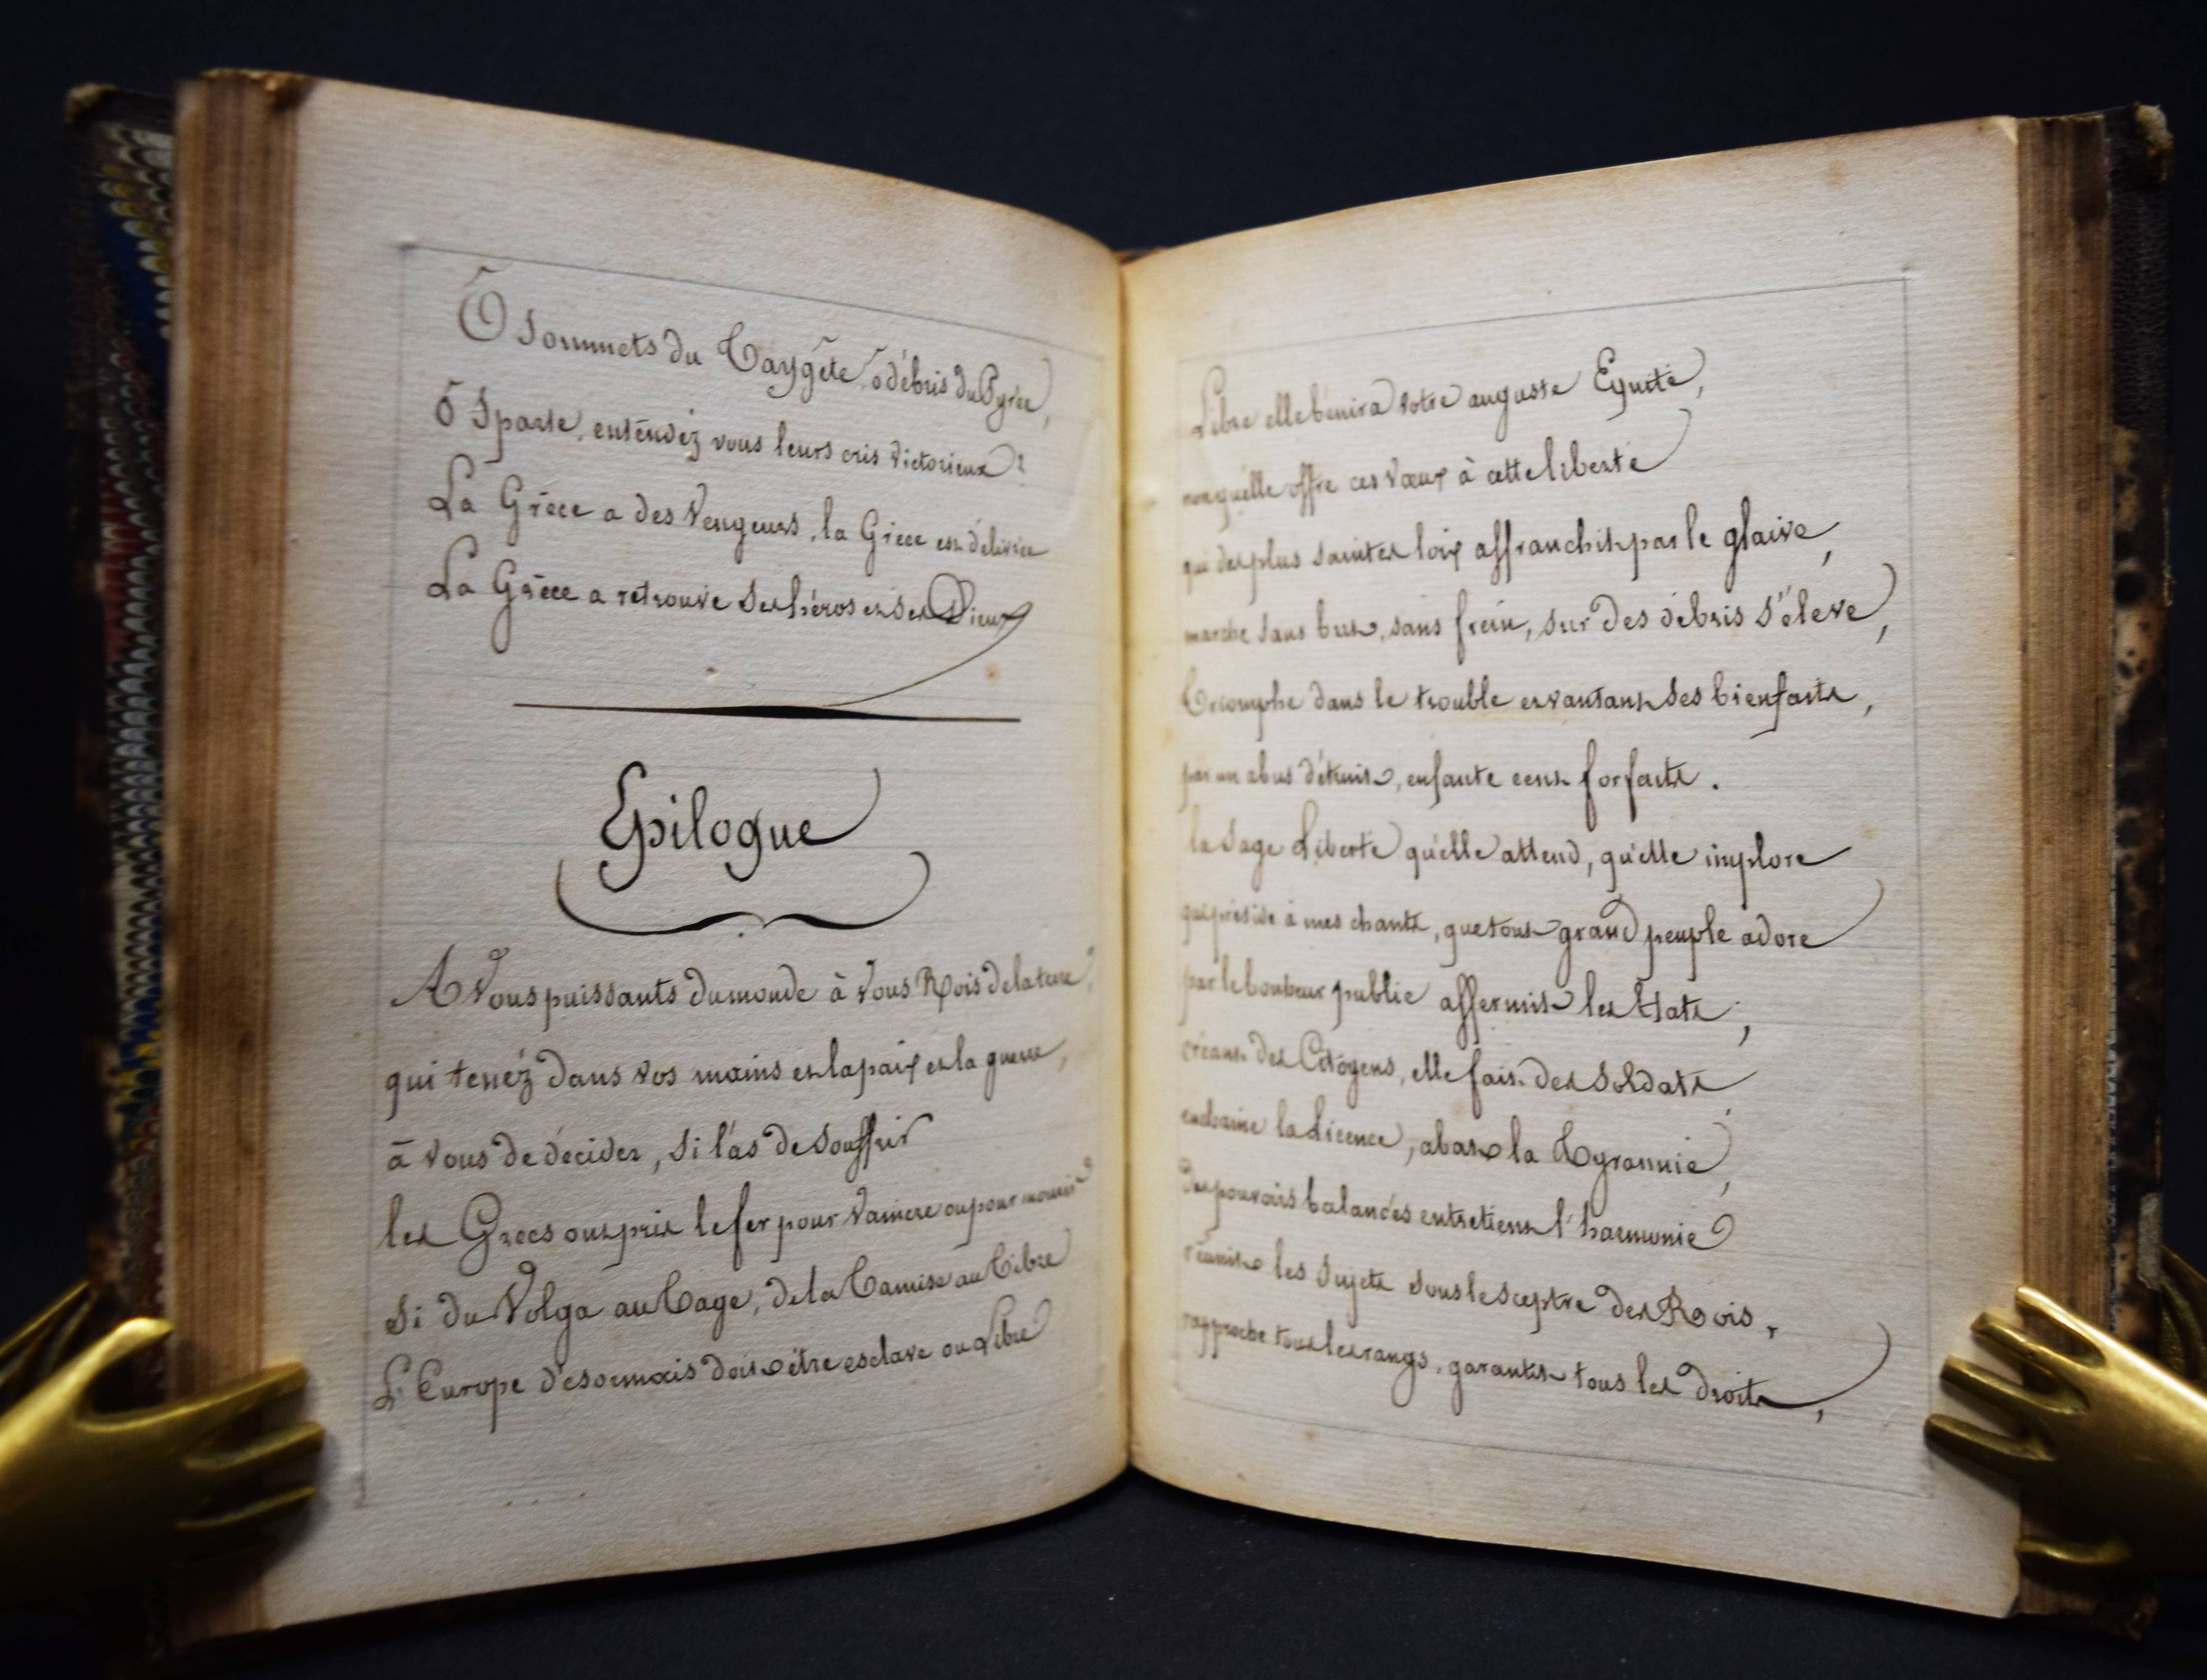 Ô Sommets du Taygête, ô débris du Pyrée,
ô Sparte, entendez vous leurs cris victorieux ?
La Grèce a des Vengeurs, la Grèce est délivrée
La Grèce a retrouvé ses héros et ses Dieux
Epilogue
A Vous puissants du monde à Vous Rois de la terre,
qui tenéz dans vos mains et la paix et la guerre,
à vous de décider, si las de souffrir
les Grecs ont pris le fer pour vaincre ou pour mourir
Si du Volga au Tage, de la Tamise au Tibre
L'Europe désormais doit être esclave ou Libre
Libre elle bénira votre auguste Equité,
non qu'elle offre ces vœux à cette liberté
qui des plus saintes loix affranchit par le glaive,
marche sans but, sans frein, sur des débris s'éleve,
Triomphe dans le trouble et vantant ses bienfaits,
par un abus détruit, enfante cent forfaits.
la sage Liberté qu'elle attend, qu'elle implore
qui préside à mes chants, que tout grand peuple adore
par le bonheur public affermit les Etats ;
créant des Citoyens, elle fait des Soldats,
enchaine la Licence, abat la Tyrannie,
des pouvoirs balancés entretient l'harmonie
réunit les Sujets sous le Sceptre des Rois,
rapproche tous les rangs, garantit tous les droits,